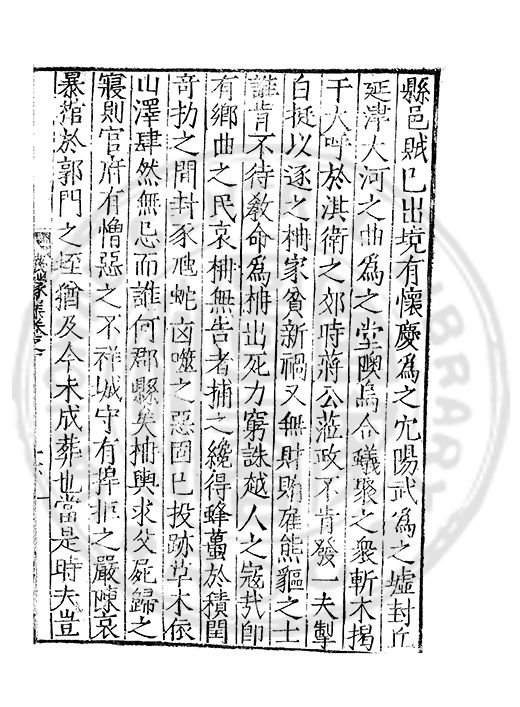 縣邑賊已出境有懷慶爲之宂陽武爲之墟封丘
延津大河之曲爲之堂隩烏合蟻聚之衆斬木揭
干大呼於淇衛之郊時蔣公蒞政不肯發一夫掣
白挺以逐之柟家貧新禍又無財賄雇熊貙之士
誰肯不待敎命爲柟出死力窮誅越人之宼㢤卽
有鄉曲之民哀柟無告者捕之纔得蜂蠆於積閏
竒扐之開封豕虺蛇齿噬之惡固已投跡草木依
山澤肆然無忌而誰何郡縣矣柟輿求父屍歸之
寢則官府有憎惡之不祥城守有捍拒之嚴隙哀
暴棺於郭門之垤猶及今未成葬也當是時夫豈